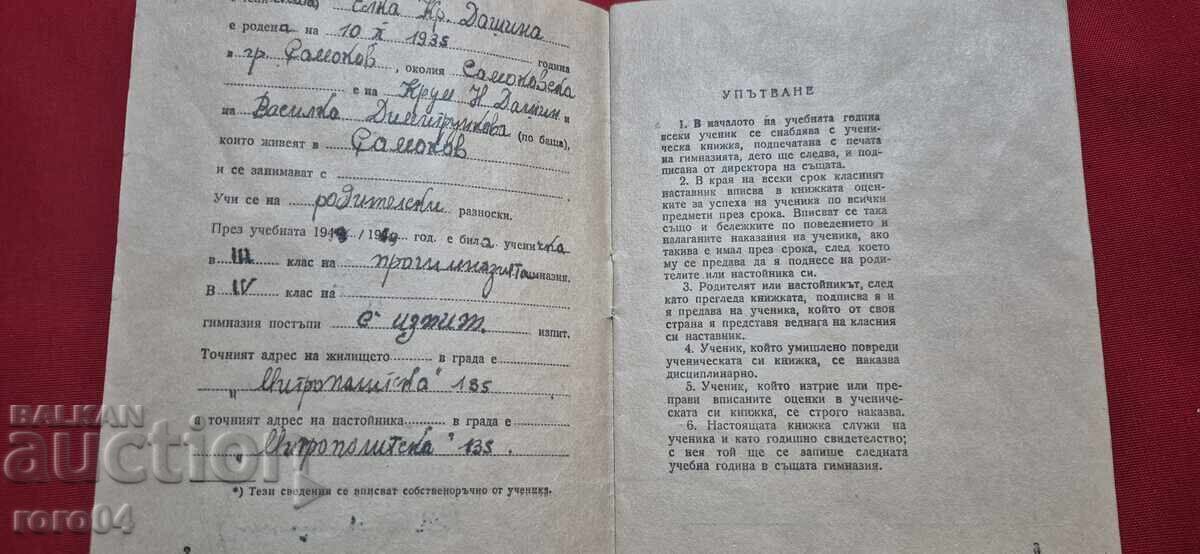 Елка Кр. Дашина
е родена на 10 X 1935 година
в гр. Самоков, околия Самоковска
е на Крум Н Дашин и
на Василка Димитрункова (по баща),
които живеят в Самоков
и се занимават с
Учи се на родителски разноски.
През учебната 1948/1949 год. е била ученичка
в III клас на прогимназията гимназия.
В IV клас на
гимназия постъпи с изпит. изпит.
Точният адрес на жилището в града е
„Митрополитска" 135
а точният адрес на настойника в града е
„Митрополитска" 135.
*) Тези сведения се вписват собственоръчно от ученика.
2
УПЪТВАНЕ
1. В началото на учебната година
всеки ученик се снабдява с учени-
ческа книжка, подпечатана с печата
на гимназията, дето ще следва, и под-
писана от директора на същата.
2. В края на всеки срок класният
наставник вписва в книжката оцен-
ките за успеха на ученика по всички
предмети през срока. Вписват се така
също и бележките по поведението и
налаганите наказания на ученика, ако
такива е имал през срока, след което
му се предава да я поднесе на роди-
телите или настойника си.
3. Родителят или настойникът, след
като прегледа книжката, подписва я и
я предава на ученика, който от своя
страна я представя веднага на класния
си наставник.
4. Ученик, който умишлено повреди
ученическата си книжка, се наказва
дисциплинарно.
5. Ученик, който изтрие или пре-
прави вписаните оценки в учениче-
ската си книжка, се строго наказва.
6. Настоящата книжка служи на
ученика и като годишно свидетелство;
с нея той ще се запише следната
учебна година в същата гимназия.
3
BALKAN
auction
roro04